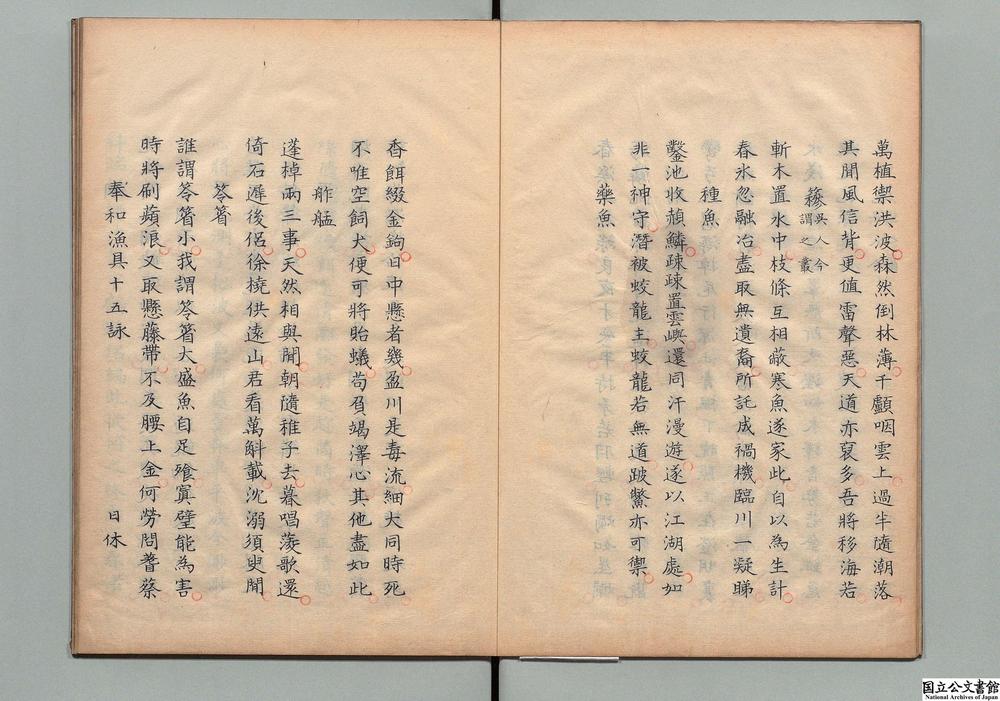 萬植禦洪波森然倒林薄千顱咽雲上過半隨潮落
其間風信背更值雷聲惡天道亦裒多吾將移海若
䅹吳人今謂之叢
斬木置水中枝條互相蔽寒魚遂家此自以為生計
春氷忽融冶盡取無遺裔所託成禍機臨川一凝睇
種魚
鑿池收赬鱗疎疎置雲嶼還同汗漫遊遂以江湖處如
非神守潛被蛟龍主蛟龍若無道跛鱉亦可禦
藥魚
香餌綴金鉤日中懸者幾盈川是毒流細大同時死
不唯空飼犬便可將貽蟻苟負竭澤心其他盡如此
舴艋
蓬棹兩三事天然相與閒朝隨稚子去暮唱菱歌還
倚石遲後侶徐橈供遠山君看萬斛載沈溺須臾間
笭箵
誰謂笭箵小我謂笭箵大盛魚自足飱寘璧能為害
時將刷蘋浪又取懸藤帶不及腰上金何勞問蓍蔡
奉和漁具十五詠 日休
国立公文書館
National Archives of Japan